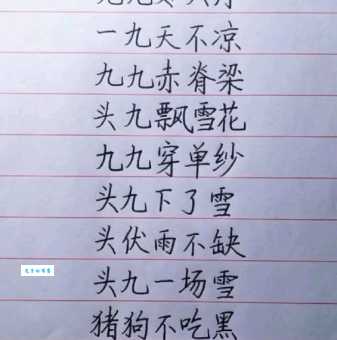 一九天不凉
九九赤脊梁
头九飘雪花
九九穿单纱
头九下了雪
头伏雨不缺
头九一场雪
猪狗不吃黑